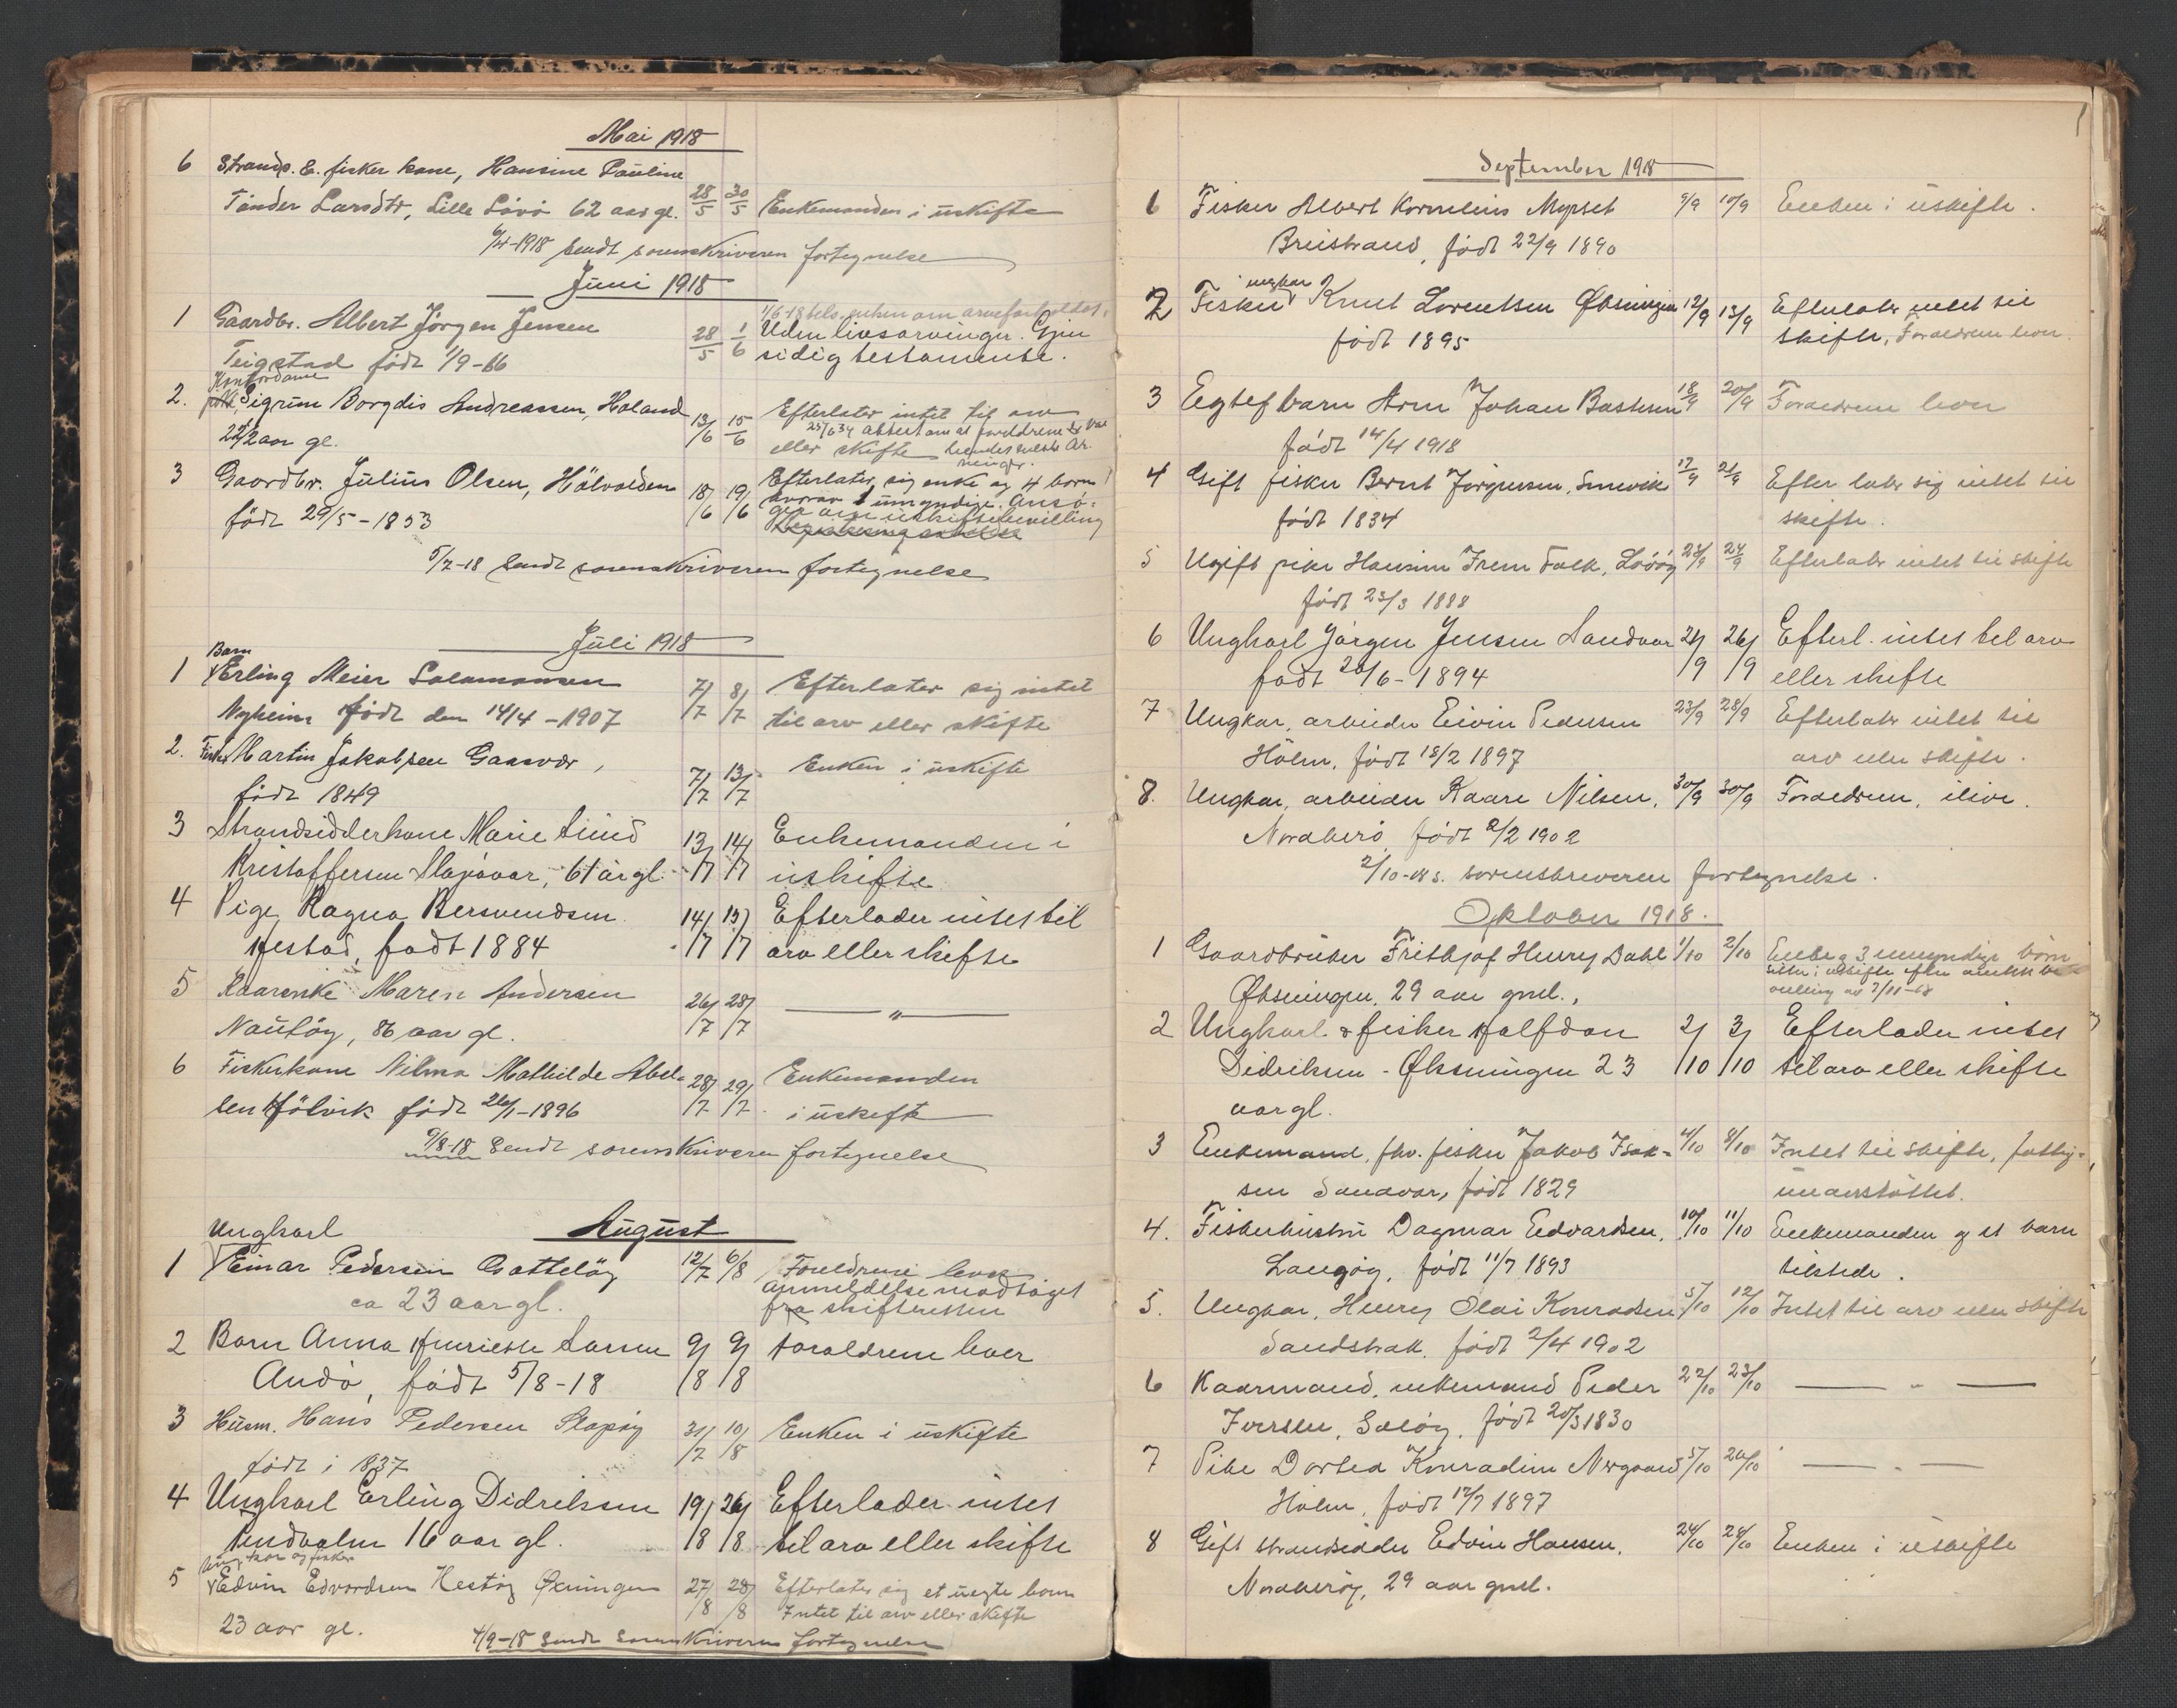 Mai 1918
6 Strands. E. fisker kone, Hansine Pauline
Tander Larsdtr, Lille Lövö 62 aar gl. 28/5 30/5 Enkemanden i uskifte
6/4-1918 sendt sorenskriveren fortegnelse
Juni 1918
1 Gaardbr. Albert Jörgen Jensen 28/5 1/6 Uden livsarvinger. Gjen
Teigstad født 1/9-66 sidig testamente.
Kontordame
2. Sigrun Borgdis Andreassen, Holand 13/6 15/6 Efterlater intet til arv
22 1/2 aar gl. eller skifte
3 Gaardbr. Julius Olsen, Hölvolden 18/6 19/6 Efterlater sig enke og 4 børn
hvorav 1 umyndige. Ansö-
født 29/5-1853 ger om uskiftebevilling
5/7-18 Sendt sorenskriveren fortegnelse
Juli 1918
Barn
1 Erling Meier Salamonsen 7/7 8/7 Efterlater sig intet
Nyheim født den 14/4-1907 til arv eller skifte
2. Fisker Martin Jakobsen Gaasvær, 7/7 13/7 Enken i uskifte
født 1849
3 Strandsidderkone Marie Lund 13/7 14/7 Enkemanden i
Kristoffersen Slapøvar, 61 år gl. uskifte
4 Pige Ragna Bersvendsen 14/7 15/7 Efterlader intet til
Hestad, født 1884 arv eller skifte
5 Kaarenke Maren Andersen 26/7 28/7 — " —
Nautöy, 86 aar gl.
6 Fiskerkone Vilma Mathilde Abel- 28/7 29/7 Enkemanden
sen Hölvik født 26/1-1896 i uskifte
9/8-18 Sendt sorenskriveren fortegnelse
August
Ungkarl
1 Einar Pedersen 12/7 6/8 Forældrene lever
ca 23 aar gl. anmeldelse modtaget
fra skifteretten
2 Barn Anna Henriette Larsen 9/8 9/8 Forældrene lever
Andö, født 5/8-18
3 Husm. Hans Pedersen Slapöy 31/7 10/8 Enken i uskifte
født i 1837
4 Ungkarl Erling Didriksen 19/8 26/8 Efterlader intet
16 aar gl. til arv eller skifte
Ungkar og fisker
5 Edvin Edvardsen Hestöy Øxningen 27/8 28/8 Efterlater sig et uegte barn
23 aar gl. Intet til arv eller skifte
4/9-18 Sendt Sorenskriveren fortegnelse
September 1918
1 Fisker Albert Kornelius Mypset 9/9 10/9 Enken i uskifte.
Breistrand, født 22/9 1890
ungkar
2 Fisker Knut Lorentsen Øksningen 12/9 13/9 Efterlater intet til
født 1895 skifte, Forældrene lever.
3 Egtef barn Arne Johan Bastesen 18/9 20/9 Forældrene lever
født 14/4 1918
4 Gift fisker Bernt Jørgensen, Smevik 17/9 21/9 Efterlater sig intet til
født 1834 skifte.
5 Ugift pike Hansine Irene Falk, Lövöy 23/9 24/9 Efterlater intet til skifte
født 23/3 1888
6 Ungkarl Jörgen Jensen Sandvær 21/9 26/9 Efterl. intet til arv
født 20/6-1894 eller skifte
7 Ungkar, arbeider Eivin Pedersen 23/9 28/9 Efterlater intet til
Holm, født 18/2 1897 arv eller skifte.
8. Ungkar, arbeider Kaare Nilsen, 30/9 30/9 Forældrene, ilive.
Nordherö født 2/2 1902
2/10-18 s. sorenskriveren fortegnelse.
Oktober 1918.
1 Gaardbruker Frithjof Henry Dahl 1/10 2/10 Enke og 3 umyndige børn
sitter i uskifte efter
Øksningen, 29 aar gml., villing av 7/11-18
2 Ungkarl & fisker Halfdan 2/10 3/10 Efterlader intet
Didriksen - Øksningen 23 til arv eller skifte
aar gl.
3 Enkemand, fhv. fisker Jakob Isak- 4/10 8/10 Intet til skifte, fattig-
sen Sandvær, født 1829 understøttet.
4. Fiskerhustru Dagmar Edvardsen, 10/10 11/10 Enkemanden og et barn
Langöy, født 11/7 1893 tilstede.
5. Ungkar, Henry Olai Konradsen 5/10 12/10 Intet til arv eller skifte
Sandstrak. født 2/4 1902
6 Kaarmand, enkemand Peder 22/10 23/10 — " —
Iversen, Salöy, født 20/3 1830
7 Pike Dortea Konradine Nergaard 5/10 26/10 — " —
Holm, født 17/7 1897
8 Gift strandsidder Edvin Hansen, 24/10 28/10 Enken i uskifte
Nordheröy, 29 aar gml.